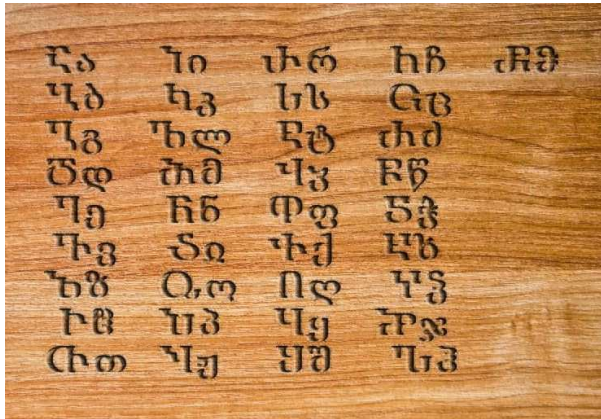 Ⴀა Ⴈი Ⴐრ Ⴙჩ Ⴥჵ
Ⴁბ Ⴉკ Ⴑს Ⴚც
Ⴂგ Ⴊლ Ⴒტ Ⴛძ
Ⴃდ Ⴋმ Ⴣჳ Ⴜწ
Ⴄე Ⴌნ Ⴔფ Ⴝჭ
Ⴅვ Ⴢჲ Ⴕქ Ⴞხ
Ⴆზ Ⴍო Ⴖღ Ⴤჴ
Ⴡჱ Ⴎპ Ⴗყ Ⴟჯ
Ⴇთ Ⴏჟ Ⴘშ Ⴠჰ